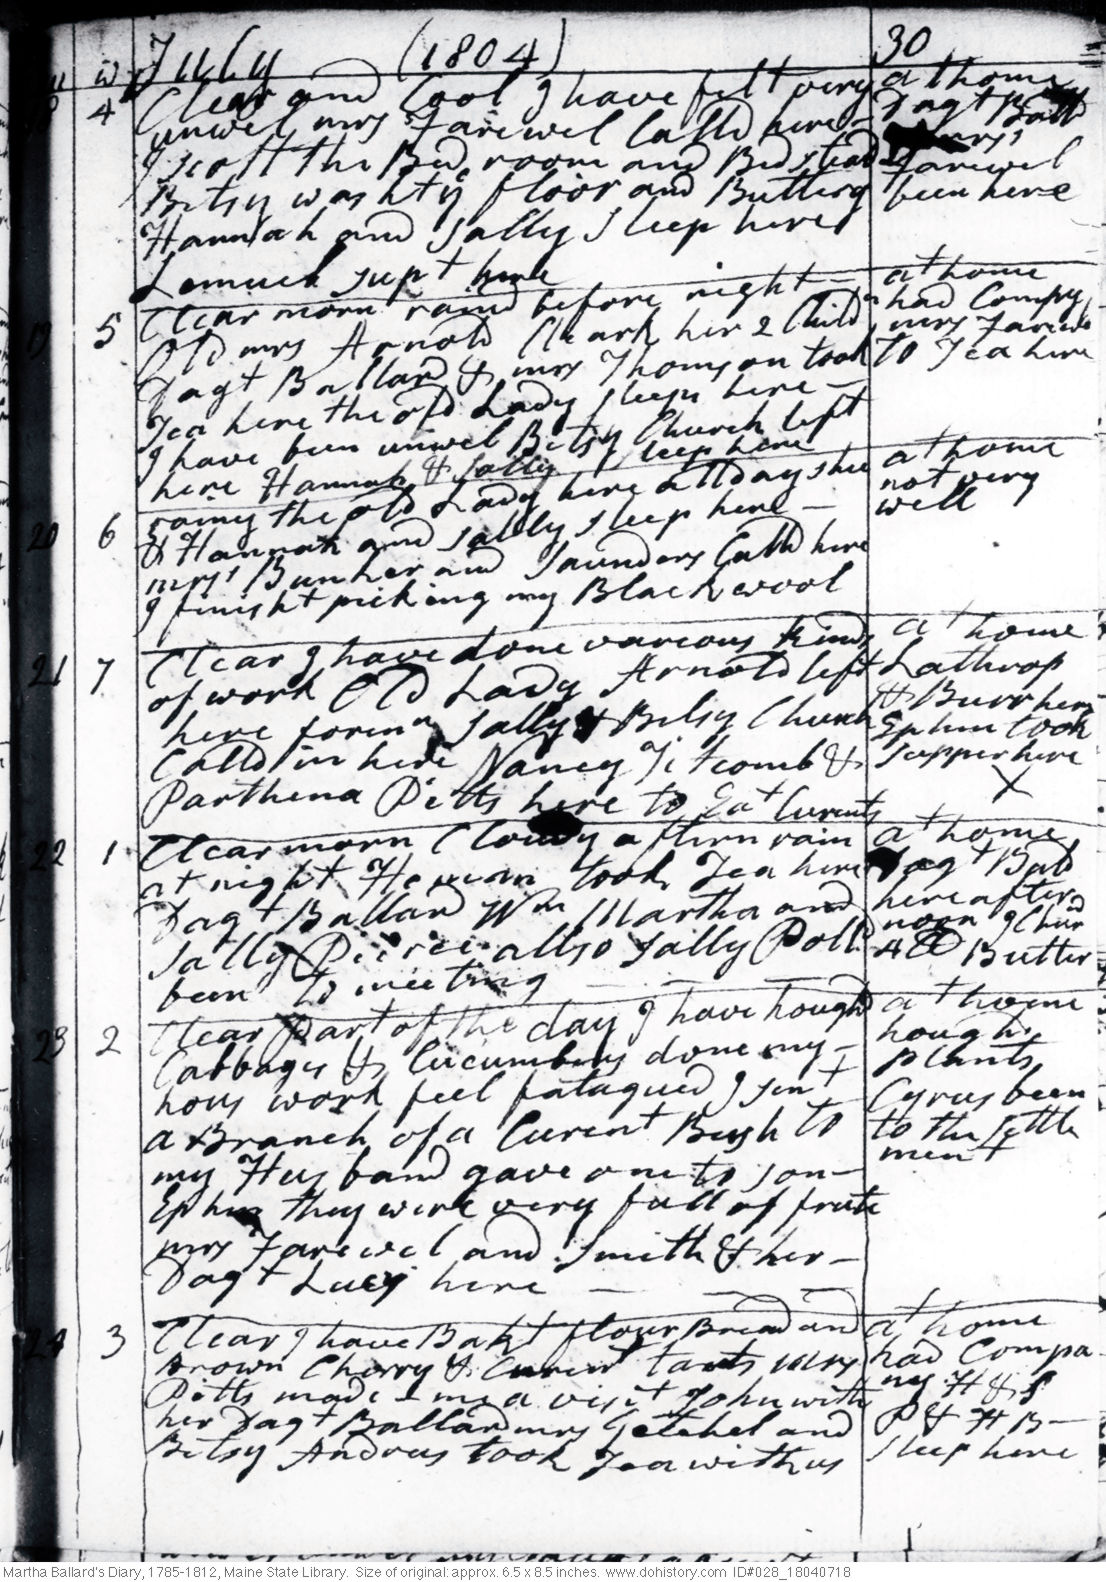 July (1804) 30
m w
18 4 Clear and Cool I have felt very
unwel mrs Farewel Calld here -
I scott the Bed room and Bedstead
Bitsy washt ye floor and Buttery
Hannah and Sally Sleep here
Lemuel supt here
at home
Dagt Ball
mrs
Farewel
been here
19 5 Clear morn raind before night -
Old mrs Arnold Cleark her 2 Childn
Dagt Ballard & mrs Thomson took
Tea here the old Lady sleeps here -
I have been unwel Bitsy Church left
here Hannah & Sally sleep here
at home
had Compy
mrs Farewel
to Tea here
20 6 rainy the old Lady here all day shee
& Hannah and Sally sleep here -
mrss Bunker and Saunders Calld here
I finisht picking my Black wool
at home
not very
well
21 7 Clear I have done vareous kinds
of work Old Lady Arnold left
here forenn Sally & Bitsy Church
Calld in here Nancy Titcomb &
Parthena Pitts here to Eat Curents
at home
Lathrop
& Burr here
Ephm took
supper here
X
22 1 Clear morn Cloudy aftern rain
at night Heman took Tea here
Dagt Ballard Wm Martha and
Sally Peirce allso Sally Polld
been to meeting
at home
Dagt Bald
here after
noon I Churd
4 lb Butter
23 2 Clear Part of the day I have hough
Cabbages & Cucumbers done my -
hous work feel fatagued I sent
a Branch of a Curent Bush to
my Husband gave one to son -
Ephm they were very full of frute
mrs Farewel and Smith & her -
Dagt Lucy here -
at home
hough
plants
Cyrus been
to the settle
ment
24 3 Clear I have Bakt flour Bread and
Brown Cherry & Curent tarts mrs
Pitts made me a visit John with
her Dagt Ballard mrs Getchel and
Bitsy Andrus took Tea with us
at home
had Compa
ny H & S
P & H B -
sleep here
Martha Ballard's Diary, 1785-1812, Maine State Library. Size of original: approx. 6.5 x 8.5 inches. www.dohistory.com ID#028_18040718